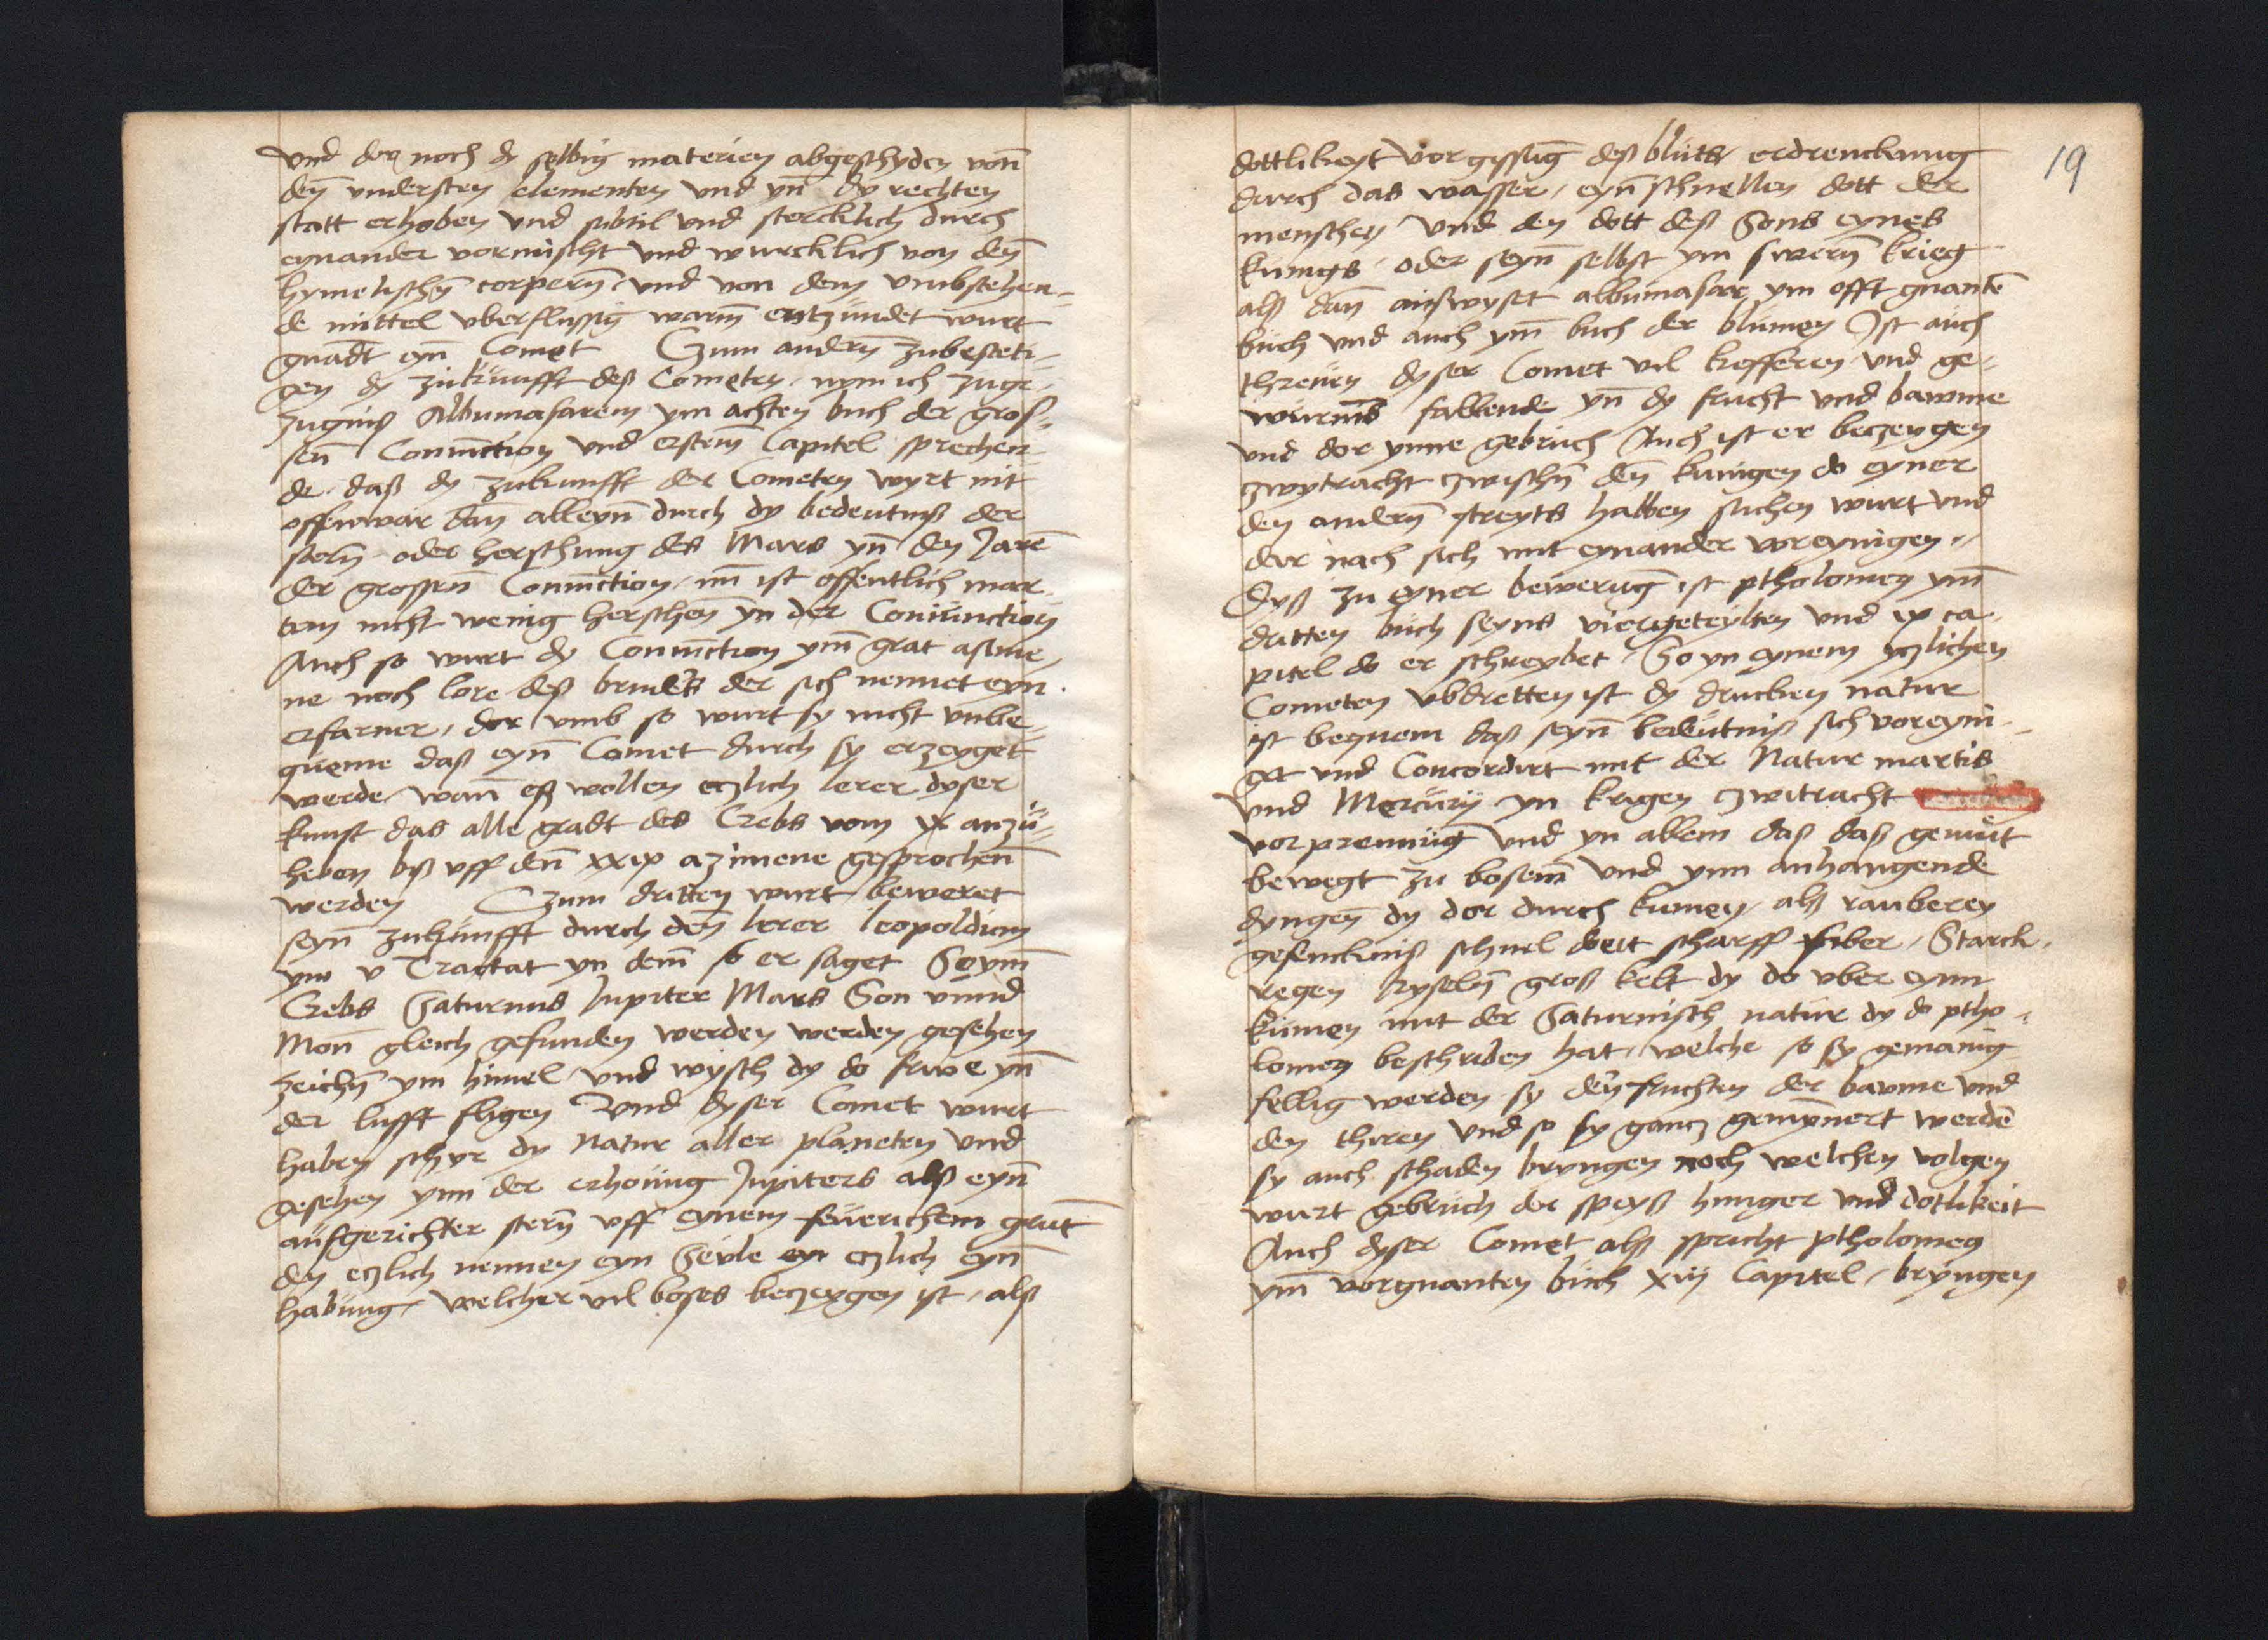 Und dor noch dy selbig materien abgeschyden von̄
den̄ understen elementen und yn̄ dy rechten
statt erhoben und subtil und stercklich durch
eynander vormischt und wurcklich von den̄
hymelischen̄ corpern̄ und von dem umbstehen-
de mittel uberflussiḡ warm̄ entzundet wurt
gnādt eyn̄ Comet Czum andern zubesteti-
gen dy zukunfft deß Cometen, nym ich zuge-
zugniß Albumasarem ym achten buch der gros-
sen̄ Coniūction und erstem̄ Capitel sprechen-
de. daß dy zukunfft der Cometen wyrt nit
offenwar dan̄ alleyn̄ durch dy bedeutniß der
stern̄ oder herschung des Mars yn̄ den Jarē
der grossen̄ Coniūction, nu̅ ist offentlich mar-
tem nicht wenig herschen̄ yn der Coniunction
Auch so wurt dy Coniūction ym̄ grat asime-
ne noch lore deß bruders der sich nennet eyn
erfarner, dor umb so wurt sy nicht unbe-
queme daß eyn̄ Comet durch sy erzeyget
werde, wan̄ eß wollen etzlich lerer dyser
kunst das alle gradt des Crebs vom ix anzu-
heben biß uff den̄ xxix azimene gesprochen̄
werden Czum dritten wurt beweret
seyn̄ zukunfft durch den̄ lerer leopoldum
ym v Tractat yn dem̄ so er saget So ym̄
Crebs Saturnus Jupiter Mars Son unnd
Mon̄ gleich gefunden werden werden gesehen
zeichn̄ ym himel und wysch dy do frwe yn̄
der lufft fligen Und dyser Comet wurt
haben schyr dy natur aller planeten und
gesehen ynn der erhoung Jupiters alß eyn̄
aufgerichter stern̄ uff eynem feuerichem grat
den etzlich nennen eyn Sevle etzlich eyn̄
habung, welcher vil boses beczeygen ist, alß
19
dottlikeyt vorgissuḡ deß bluts erdrenckung
durch das wasser, eyn̄ schnellen dott der
menschen und den dott deß Sons eynes
kunigs oder seyn̄ selbst ym swern̄ krieg
alß dan̄ außwyset albumasar ym offt gnantē
buch und auch ym̄ buch der blumen Ist auch
threuen dyser Comet vil kefferen und ge-
wurms fallende yn̄ dy frucht und bawme
und dor ynne gebruch Auch ist er beczeygen
zwytracht zwischn̄ den̄ kunigen do eyner
den andern̄ streyts halben suchen wurt und
dor nach sich mit eynander voreynigen,
Dyß zu eyner beweruḡ ist ptholomey ym̄
dritten buch seyns viergeteylten und ix ca-
pitel do er schreybet, So yn eynem yzlichen
Cometen ubdretten ist dy drucken natur
ist bequem daß seyn̄ bedeutniß sich voreyni-
get und Concordirt mit der Natur martis
und Mercurij yn krigen zwitracht
vorprennuḡ und yn allem daß daß gemut
bewegt zu bosem̄ und ynn anhangende
dyngen̄ dy dor durch kumen, alß rauberey
gefenckniß schnel dott scharff fiber, Starck
regen kyseln̄ groß kelt dy do uber eyn
kumen mit der Saturnisch natur dy do ptho-
lomey beschriben hat, welche so sy gemanig-
fellig werden sy den̄ fruchten der bawme und
den thiren und so sy gancz gemynnert werdē
sy auch schaden bryngen noch welchen volgen
wurt gebruch der speyß hunger und dotlikeit
Auch dyser Comet alß spricht ptholomeg
ym̄ vorgnanten buch xiij Capitel, bryngen